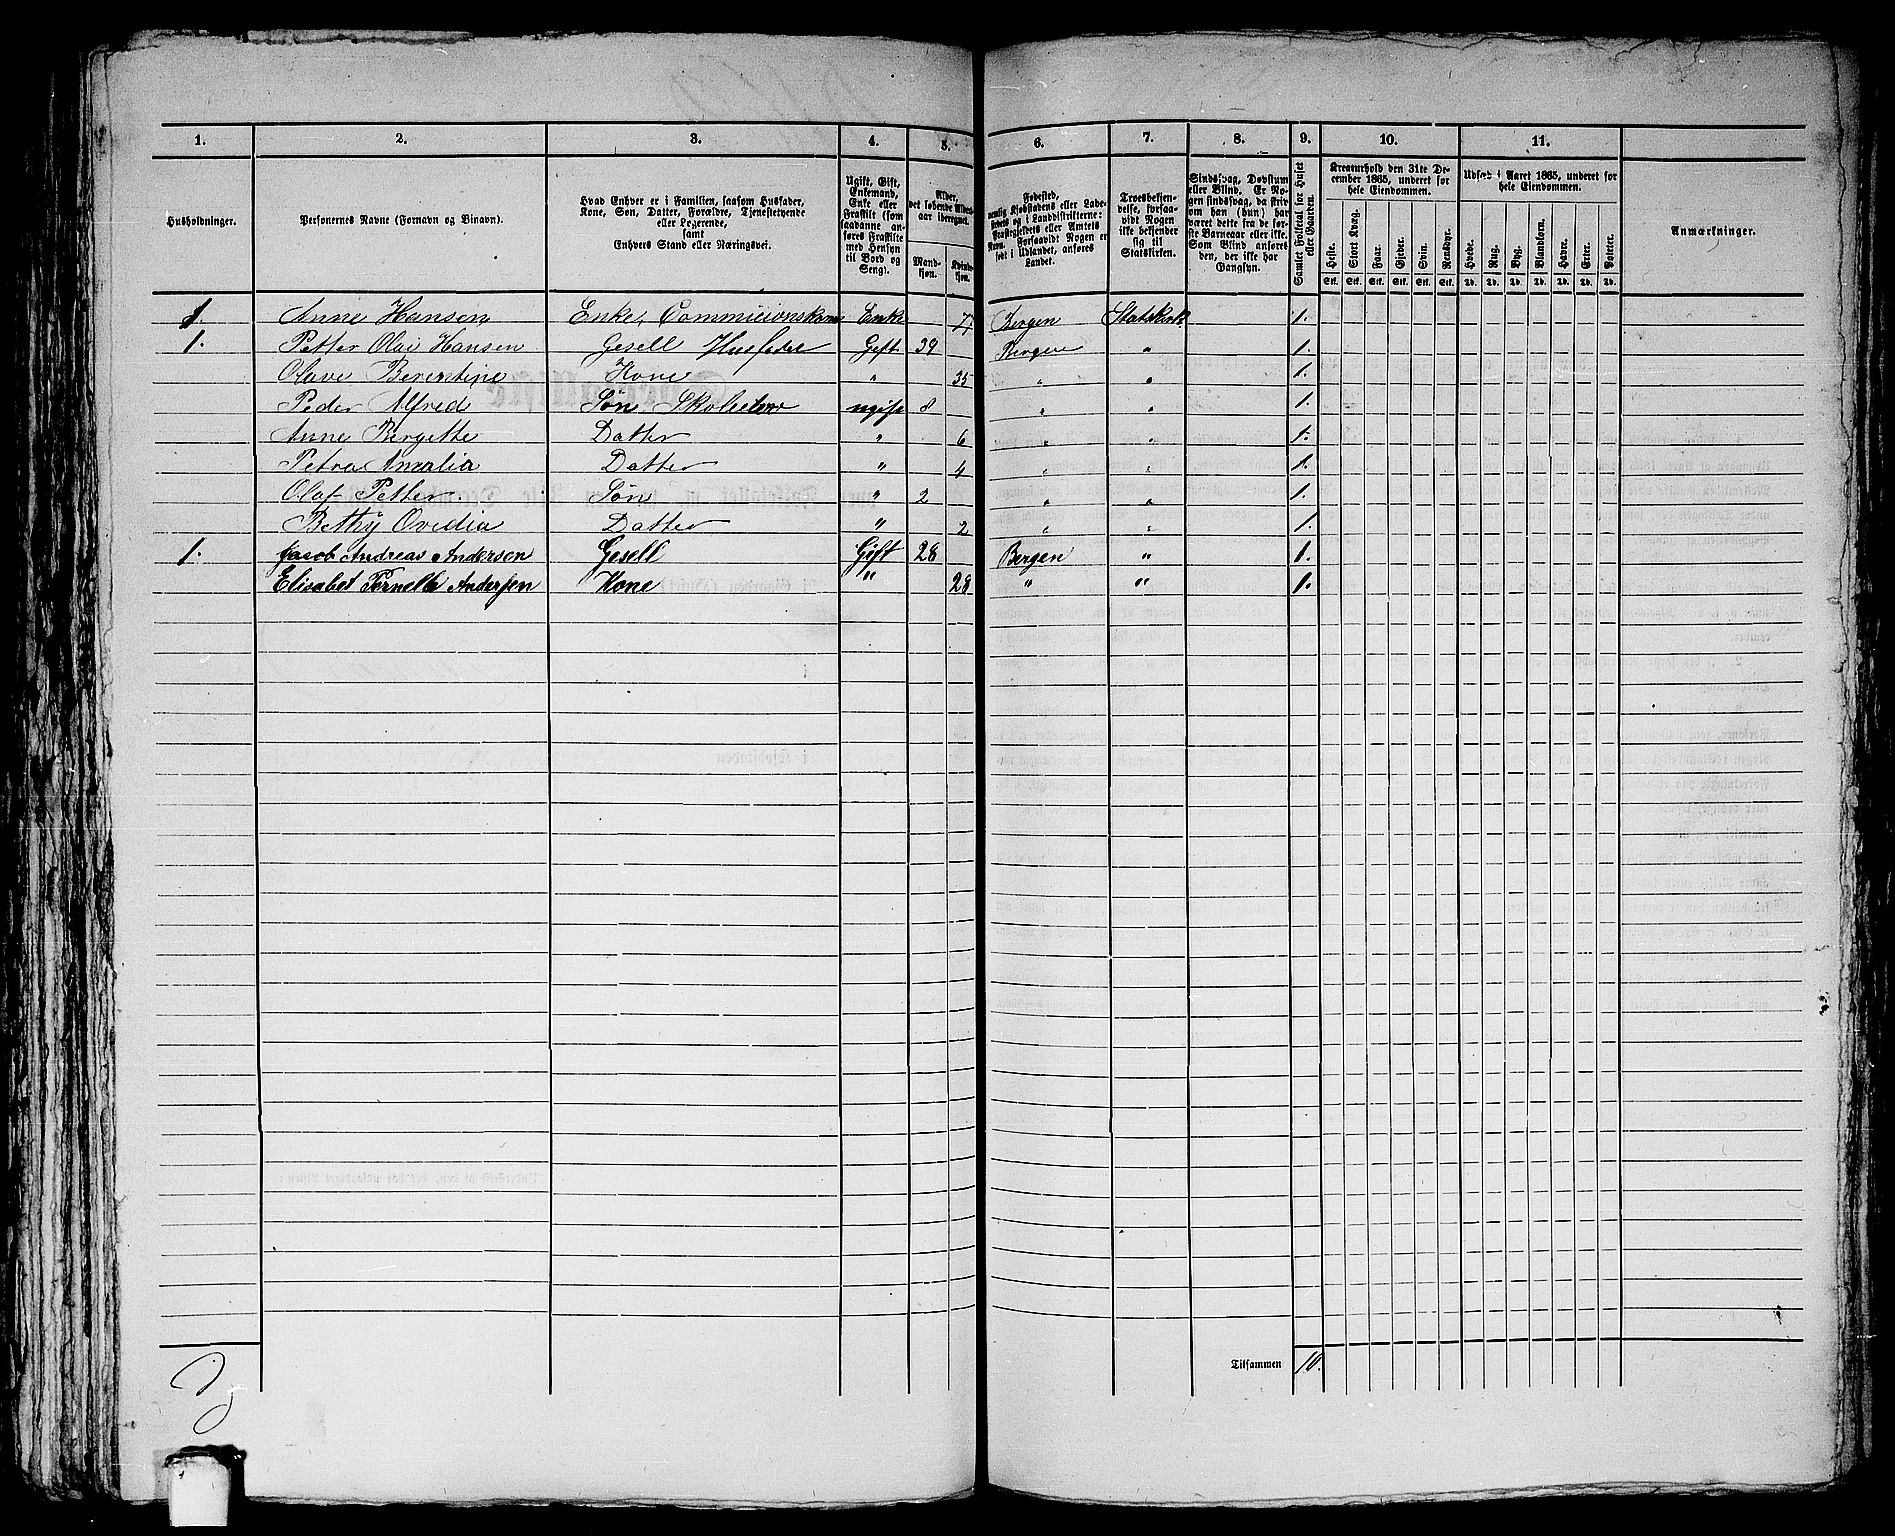 1. 2. 3. 4. 5. 6. 7. 8. 9. 10. 11.
Husholdninger.
Personernes Navne (Fornavn og Binavn).
Hvad Enhver er i Familien, saasom Husfader,
Kone, Søn, Datter, Forældre, Tjenestetyende
eller Logerende,
samt
Enhvers Stand eller Næringsvei.
Ugift, Gift,
Enkemand,
Enke eller
Fraskilt (som
saadanne an-
føres Fraskilte
med Hensyn
til Bord og
Seng).
Alder,
det løbende Alders-
aar iberegnet.
Mand-
kjøn.
Kvinde-
kjøn.
Fødested,
nemlig Kjøbstadens eller Lade-
stedets og i Landdistrikterne:
Præstegjeldets eller Amtets
Navn. Forsaavidt Nogen er
født i Udlandet, anføres
Landet.
Troesbekjen-
delse, forsaa-
vidt Nogen
ikke bekjender
sig til
Statskirken.
Sindssvag, Døvstum
eller Blind. Er No-
gen sindssvag, da skriv
om han (hun) har
været dette fra de før-
ste Barneaar eller ikke.
Som Blind anføres
den, der ikke har
Gangsyn.
Samlet Folketal for Huset
eller Gaarden.
Kreaturhold den 31te De-
cember 1865, underet for
hele Eiendommen.
Heste. Stort Kvæg. Faar. Gjeder. Svin. Rensdyr.
Stk. Stk. Stk. Stk. Stk. Stk.
Udsæd i Aaret 1865, underet for
hele Eiendommen.
Hvede. Rug. Byg. Blandkorn. Havre. Erter. Poteter.
Td. Td. Td. Td. Td. Td. Td.
Anmærkninger.
1. Anne Hansen Enke, Enke Bergen Statskirk 1.
1. Petter Olai Hansen Gesell Husfader Gift 39 Bergen " 1.
Olave Berentine Kone " 35 " " 1.
Peder Alfred Søn, ugift 8 " " 1.
Anne Bergitte Datter " 6 " " 1.
Petra Amalia Datter " 4 " " 1.
Olaf Petter Søn " 2 " " 1.
Bethy Ovedia Datter " 2 " " 1.
1. Jacob Andreas Andersen Gesell Gift 28 Bergen " 1.
Elisabet Andersen Kone " 28 " " 1.
Tilsammen 10.